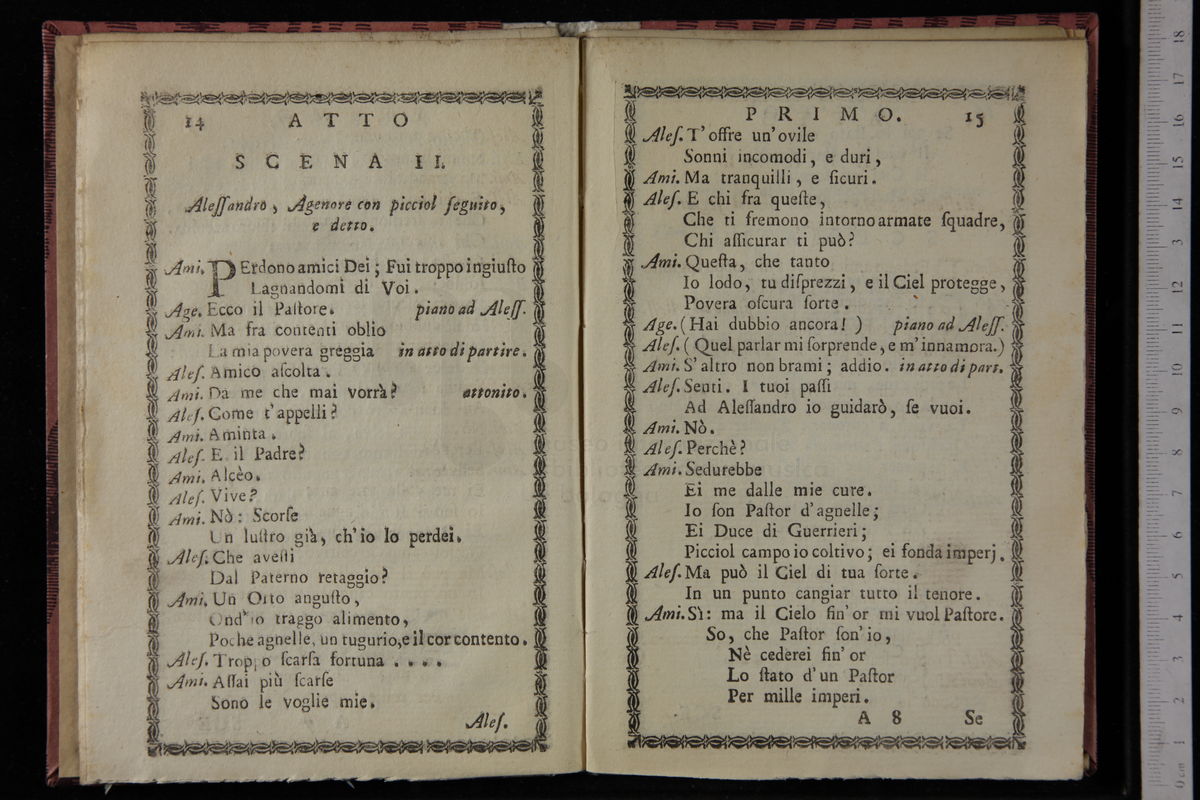 14 ATTO
SCENA II.
Aleſſandro, Agenore con picciol ſeguito,
e detto.
Ami. PErdono amici Dei; Fui troppo ingiuſto
Lagnandomi di Voi.
Age. Ecco il Paſtore. piano ad Aleſſ.
Ami. Ma fra contenti oblio
La mia povera greggia in atto di partire.
Aleſ. Amico aſcolta.
Ami. Da me che mai vorrà? attonito.
Aleſ. Come t'appelli?
Ami. Aminta.
Aleſ. E il Padre?
Ami. Alcèo.
Aleſ. Vive?
Ami. Nò: Scorſe
Un luſtro già, ch'io lo perdei.
Aleſ. Che aveſti
Dal Paterno retaggio?
Ami. Un Orto anguſto,
Ond'io traggo alimento,
Poche agnelle, un tugurio, e il cor contento.
Aleſ. Troppo ſcarſa fortuna . . . .
Ami. Aſſai più ſcarſe
Sono le voglie mie.
Aleſ.
PRIMO. 15
Aleſ. T'offre un'ovile
Sonni incomodi, e duri,
Ami. Ma tranquilli, e ſicuri.
Aleſ. E chi fra queſte,
Che ti fremono intorno armate ſquadre,
Chi aſſicurar ti può?
Ami. Queſta, che tanto
Io lodo, tu diſprezzi, e il Ciel protegge,
Povera oſcura ſorte.
Age. (Hai dubbio ancora!) piano ad Aleſſ.
Aleſ. (Quel parlar mi ſorprende, e m'innamora.)
Ami. S'altro non brami; addio. in atto di part.
Aleſ. Senti. I tuoi paſſi
Ad Aleſſandro io guidarò, ſe vuoi.
Ami. Nò.
Aleſ. Perchè?
Ami. Sedurebbe
Ei me dalle mie cure.
Io ſon Paſtor d'agnelle;
Ei Duce di Guerrieri;
Picciol campo io coltivo; ei fonda imperj.
Aleſ. Ma può il Ciel di tua ſorte.
In un punto cangiar tutto il tenore.
Ami. Sì: ma il Cielo fin'or mi vuol Paſtore.
So, che Paſtor ſon'io,
Nè cederei fin'or
Lo ſtato d'un Paſtor
Per mille imperi.
A 8 Se